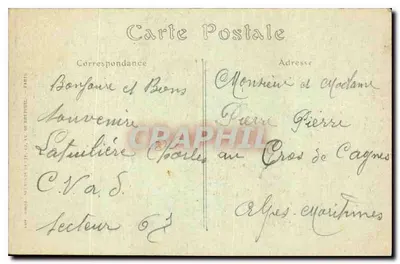 Carte Postale
Correspondance
Adresse
Bonjour et Bons
souvenire
Latuilière Charles
C.V.a.d.
secteur 67
Monsieur et Madame
Pierre Pierre
au Cros de Cagnes
Alpes-Maritimes
CPAPHIL
.com